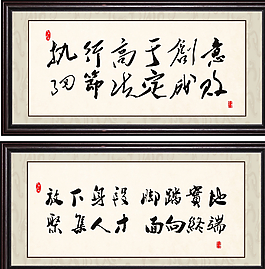 执行高于創意
细節决定成敗
放下身段 脚踏實地
聚集人才 面向終端